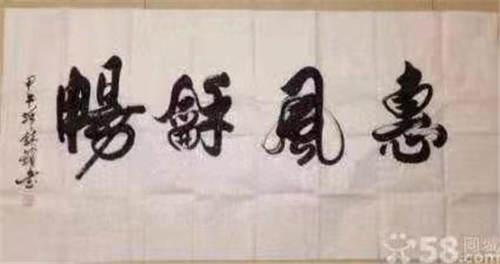 惠風龢暢
甲午
書
58同城